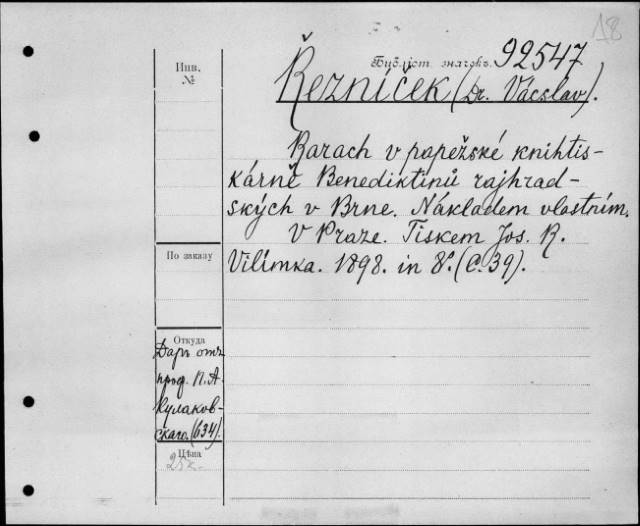 18
Инв.
№
Бубліот. значокъ.
92547
Řezníček (Dr. Vácslav).
Barach v papežské knihtis-
kárně Benediktinů rajhrad-
ských v Brne. Nákladem vlastním.
V Praze. Tiskem Jos. R.
Vilímka. 1898. in 8º. (C. 39).
По заказу
Откуда
Даръ отъ
проф. П. А.
Кулаков-
скаго. (634).
Цѣна
25к.